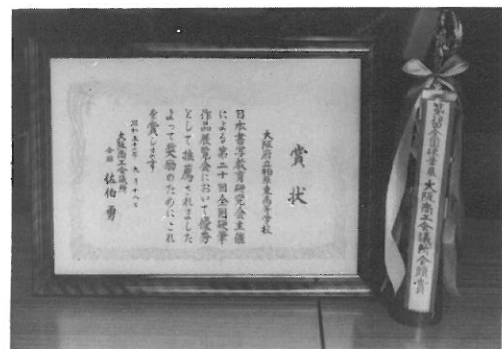 賞状
大阪府立柏原東高等学校
日本書写教育研究会主催
による第二十回全国硬筆
作品展覧会において優秀
として推薦されました
よって奨励のためにこれ
を賞します
昭和五十六年九月十八日
大阪商工会議所
会頭 佐伯勇
大阪商工会議所会頭賞